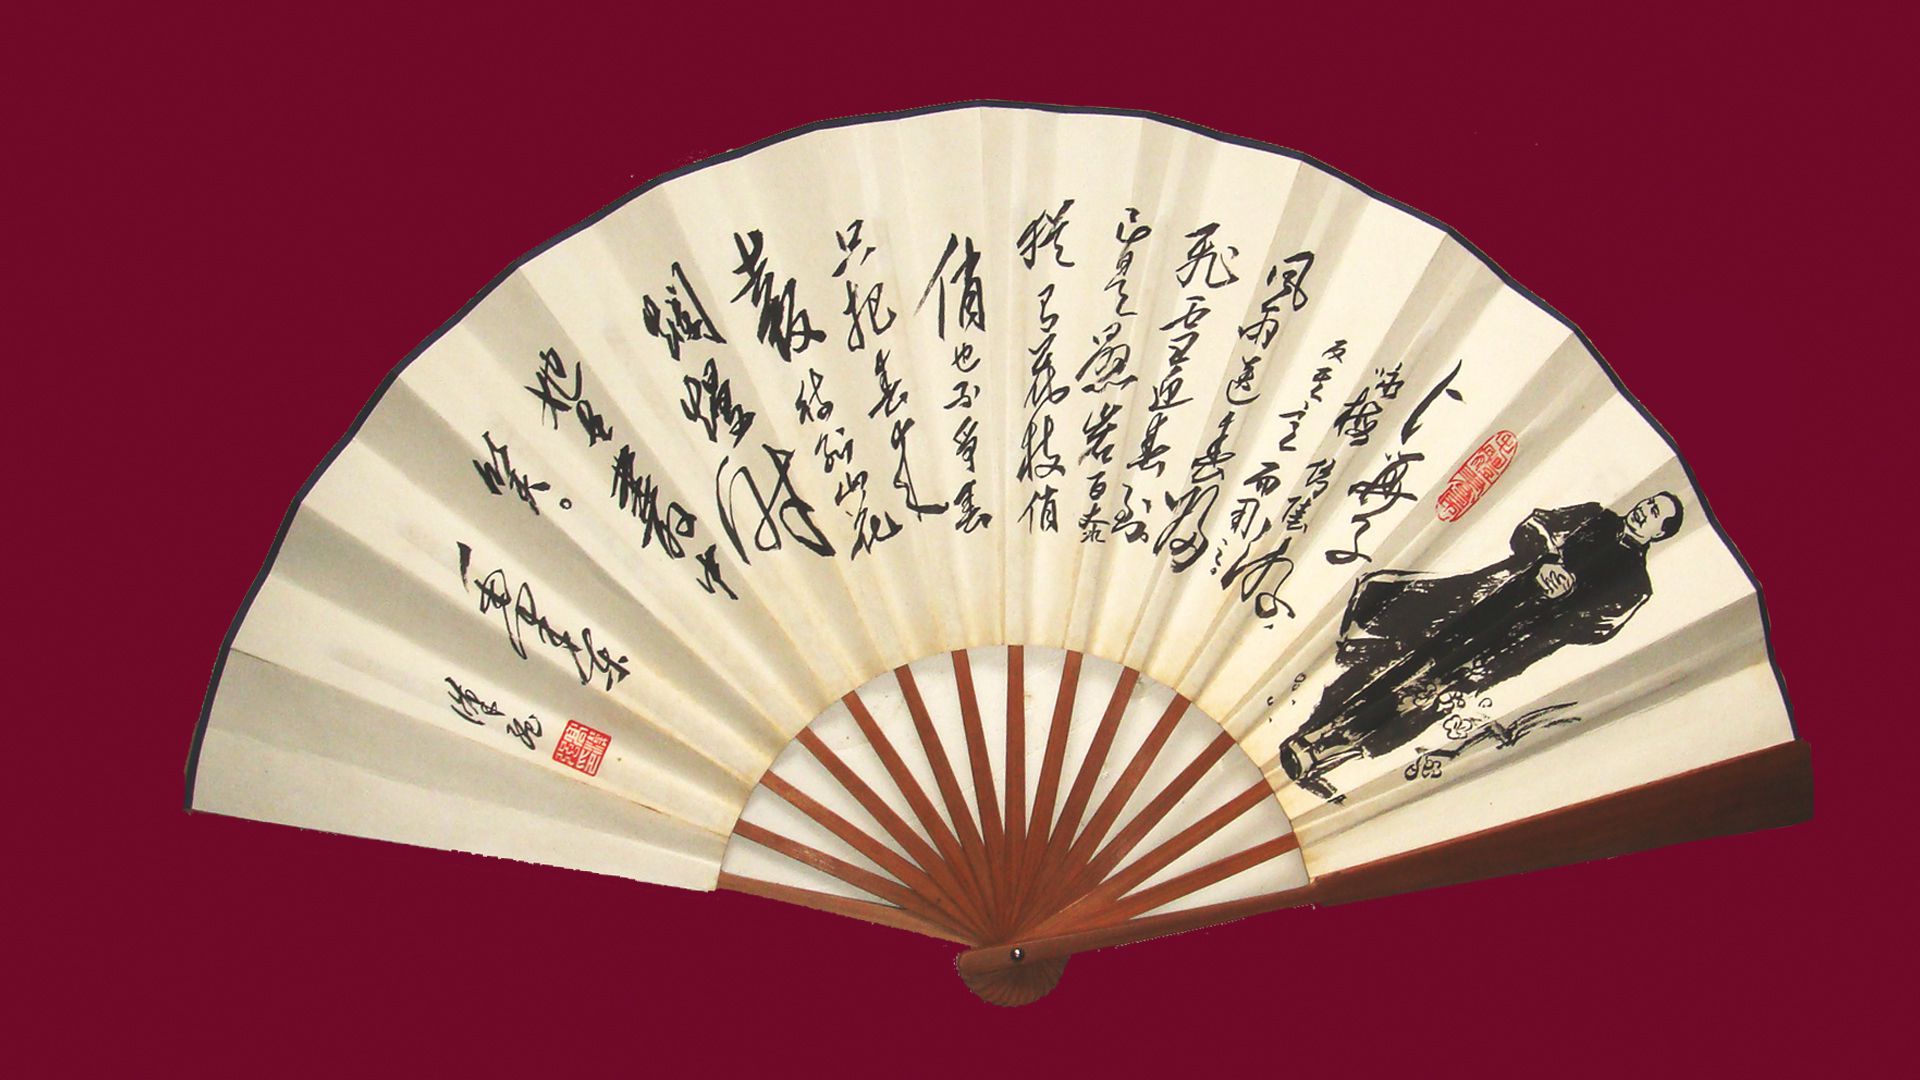 卜算子
咏梅
反其意而用之
风雨送春归
飞雪迎春到
已是悬岩百丈冰
犹有花枝俏
俏也不争春
只把春来
報待到山花
爛熳时
她在丛中
笑。